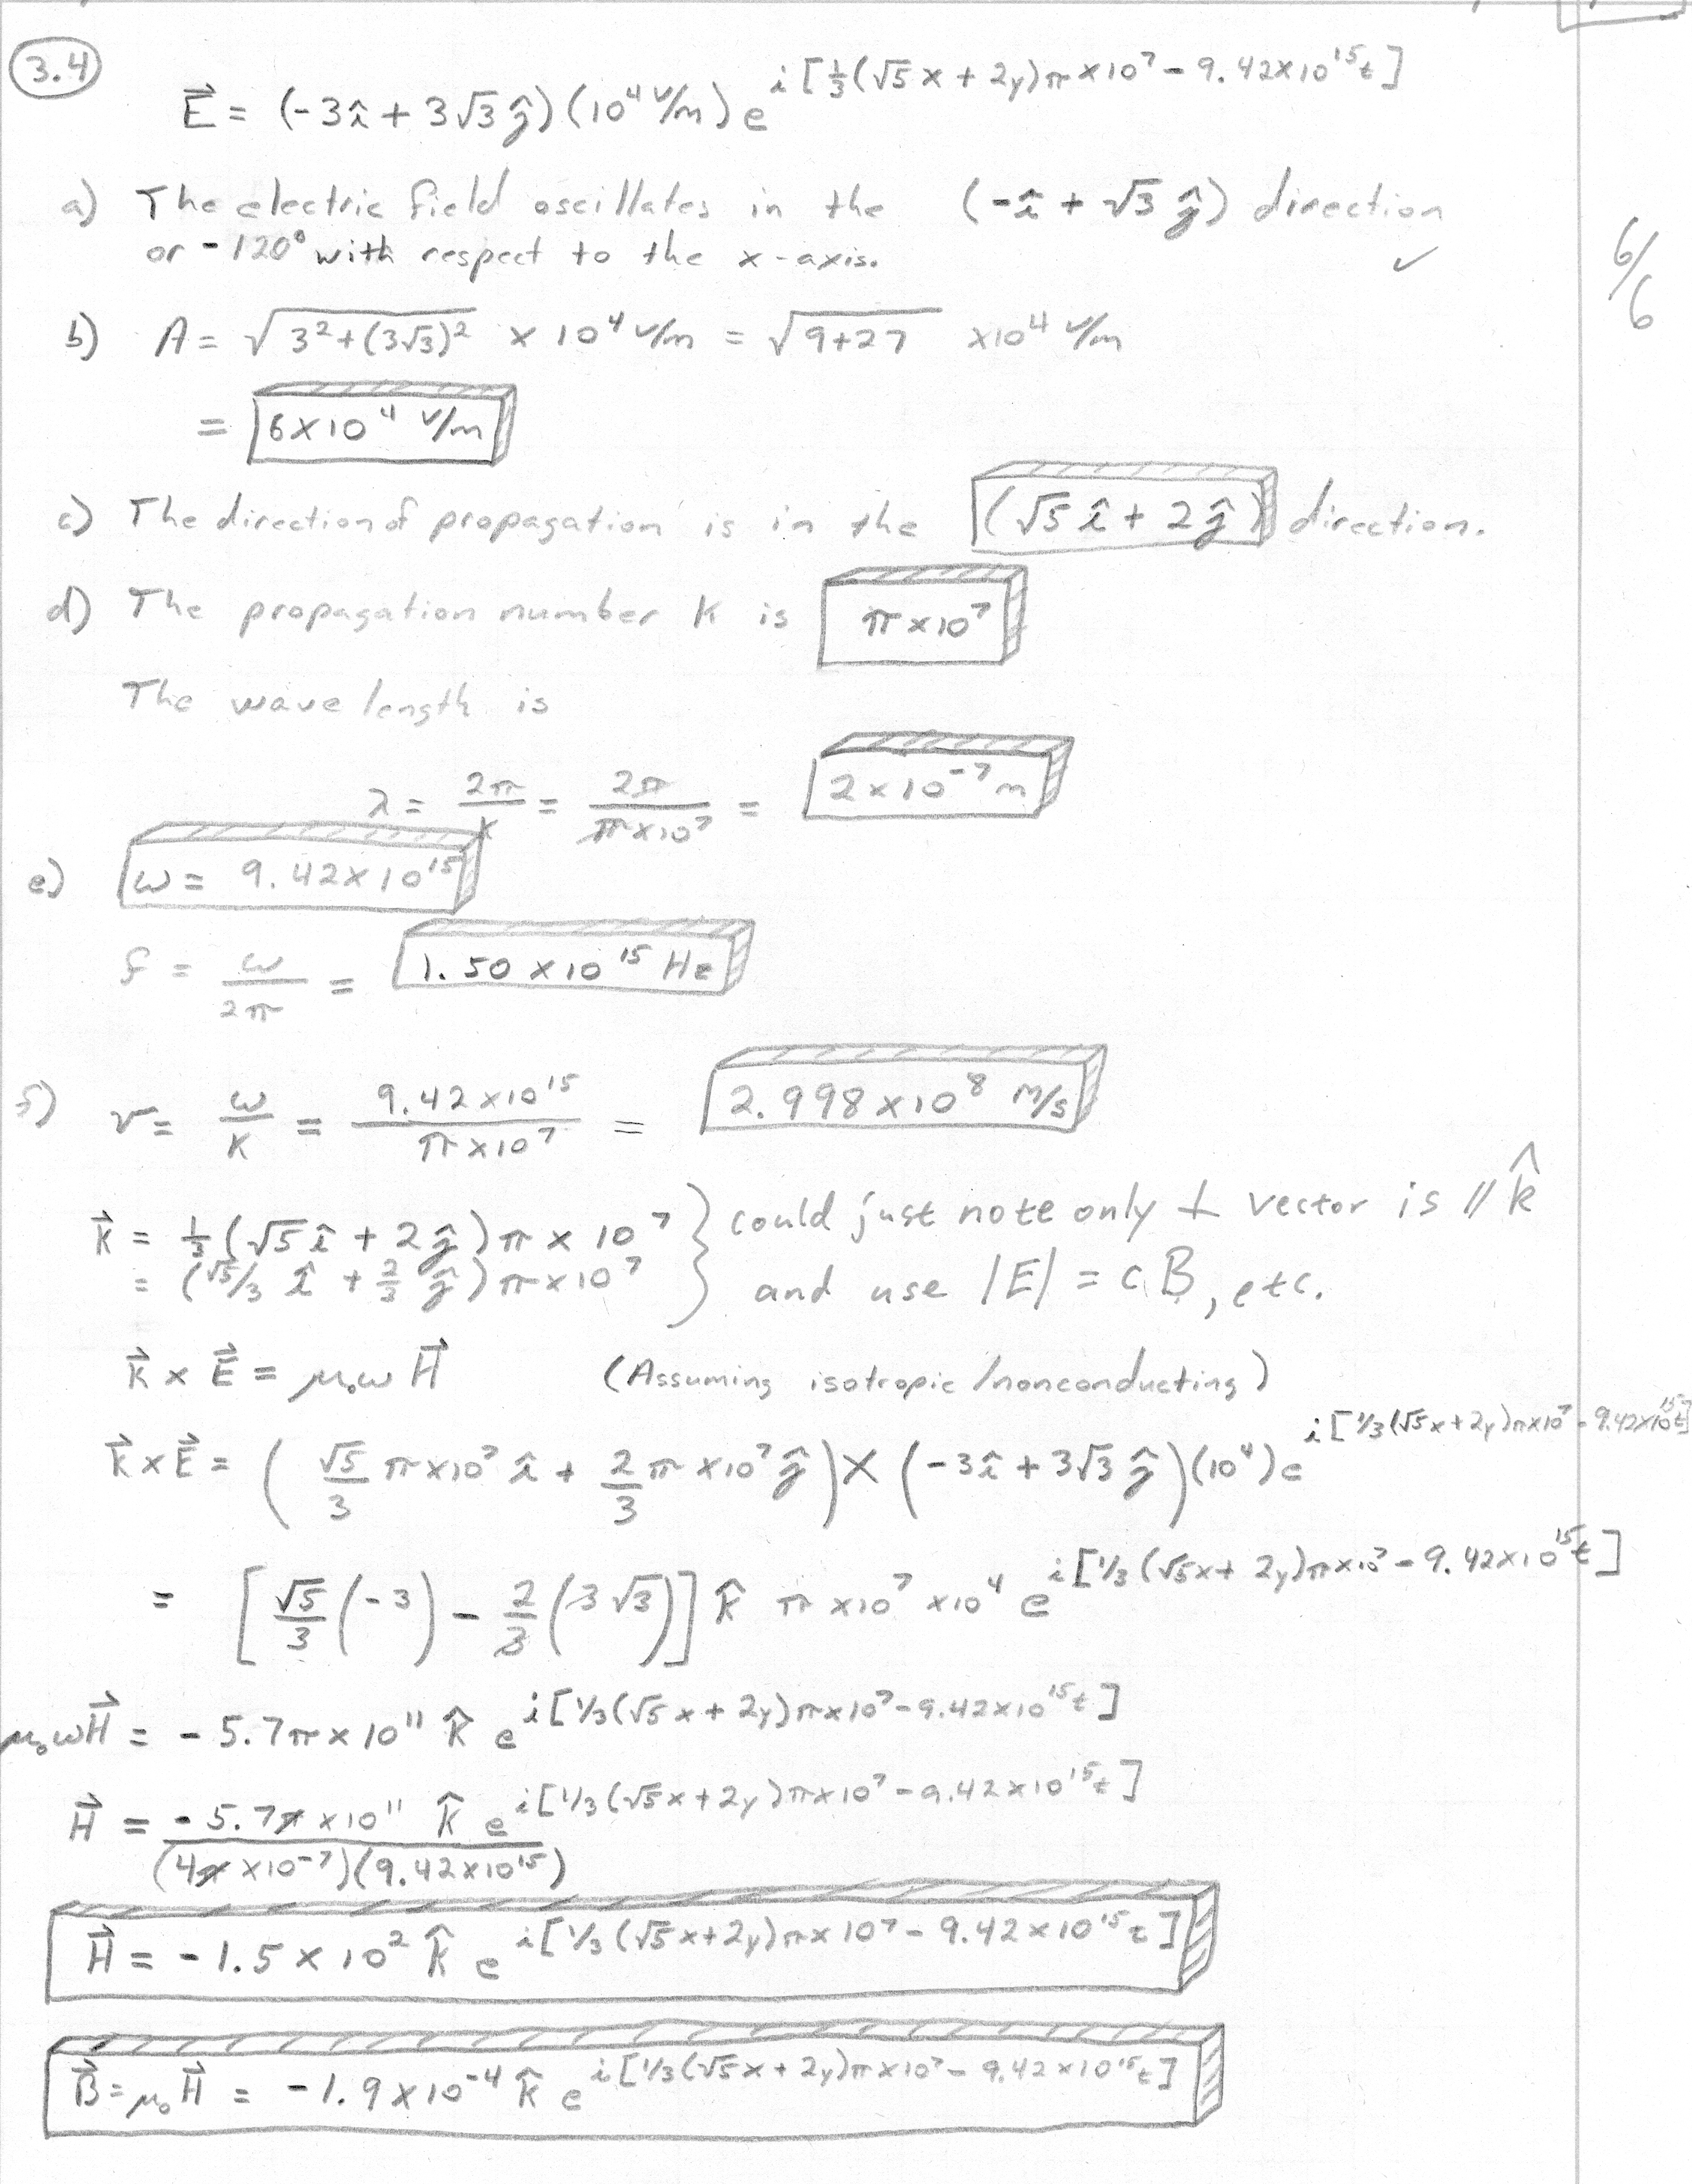 3.4
E⃗ = (-3î + 3√3 ĵ)(10⁴ V/m) e^{i[⅓(√5x + 2y)π×10⁷ - 9.42×10¹⁵t]}
a) The electric field oscillates in the (-î + √3 ĵ) direction
or -120° with respect to the x-axis. ✓
6/6
b) A = √(3² + (3√3)²) × 10⁴ V/m = √(9+27) ×10⁴ V/m
= 6×10⁴ V/m
c) The direction of propagation is in the (√5 î + 2ĵ) direction.
d) The propagation number k is π×10⁷
The wavelength is
λ = 2π/k = 2π/(π×10⁷) = 2×10⁻⁷ m
e) ω = 9.42×10¹⁵
f = ω/2π = 1.50×10¹⁵ Hz
f) v = ω/k = 9.42×10¹⁵/(π×10⁷) = 2.998×10⁸ m/s
k⃗ = ⅓(√5 î + 2ĵ)π × 10⁷ } could just note only ⊥ vector is // k̂
= (√5/3 î + ⅔ ĵ)π×10⁷ } and use |E| = cB, etc.
k⃗ × E⃗ = μ₀ωH⃗ (Assuming isotropic/nonconducting)
k⃗ × E⃗ = (√5/3 π×10⁷ î + 2/3 π×10⁷ ĵ) × (-3î + 3√3 ĵ)(10⁴) e^{i[1/3(√5x+2y)π×10⁷ - 9.42×10¹⁵t]}
= [√5/3(-3) - 2/3(3√3)] k̂ π×10⁷ ×10⁴ e^{i[1/3(√5x + 2y)π×10⁷ - 9.42×10¹⁵t]}
μ₀ωH⃗ = -5.7π×10¹¹ k̂ e^{i[1/3(√5x + 2y)π×10⁷ - 9.42×10¹⁵t]}
H⃗ = -5.7π×10¹¹ k̂ e^{i[1/3(√5x+2y)π×10⁷ - 9.42×10¹⁵t]}
(4π×10⁻⁷)(9.42×10¹⁵)
H⃗ = -1.5×10² k̂ e^{i[1/3(√5x+2y)π×10⁷ - 9.42×10¹⁵t]}
B⃗ = μ₀H⃗ = -1.9×10⁻⁴ k̂ e^{i[1/3(√5x + 2y)π×10⁷ - 9.42×10¹⁵t]}